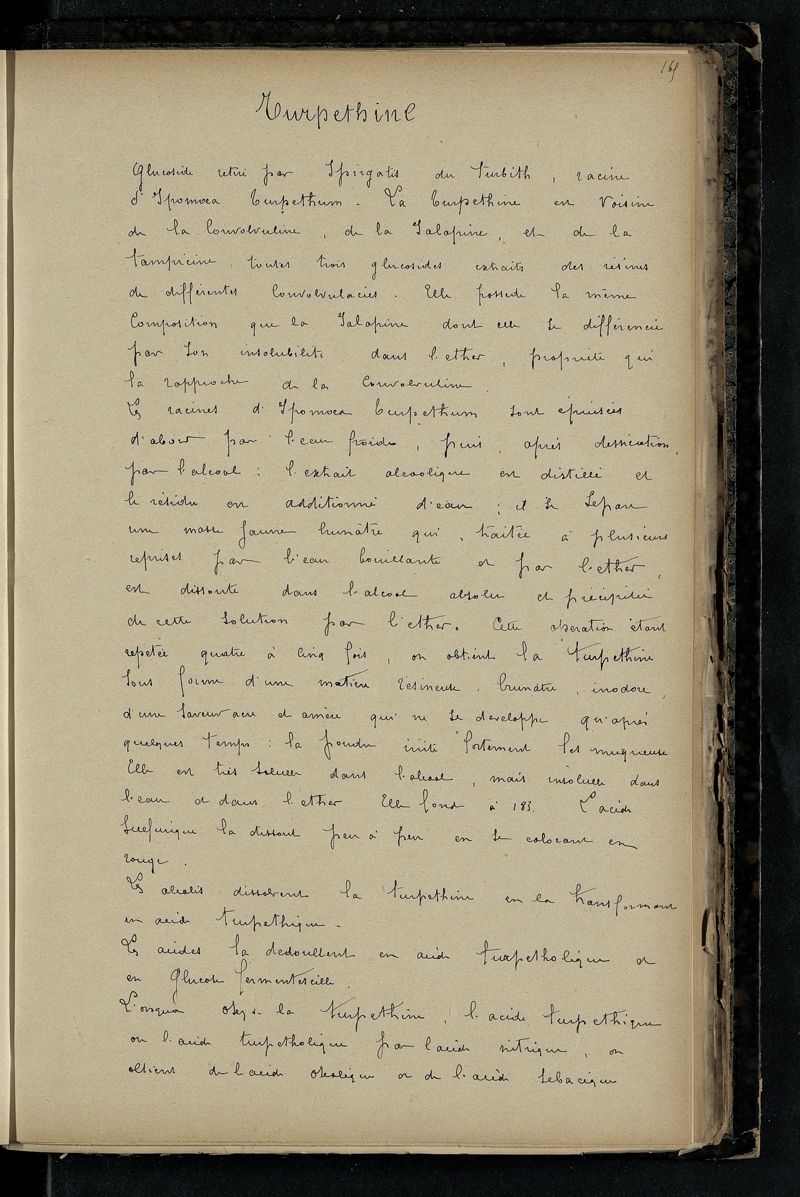 169
Turpethine
Glucoside retiré par Spirgatis du turbith, racine
d'Ipomœa turpethum. La turpethine est voisine
de la Convolvuline, de la Jalapine, et de la
tampicine, toutes trois glucosides extraits des résines
de différentes Convolvulacées. Elle possède la même
Composition que la Jalapine dont elle se différencie
par son insolubilité dans l'ether, propriété qui
la rapproche de la Convolvuline.
Les racines d'Ipomœa turpethum sont épuisées
d'abord par l'eau froide, puis, après dessication,
par l'alcool: l'extrait alcoolique est distillé et
le résidu est additionné d'eau; il se sépare
une masse jaune brunâtre qui, traitée à plusieurs
reprises par l'eau bouillante et par l'ether,
est dissoute dans l'alcool absolu et précipitée
de cette solution par l'ether. Cette operation étant
repetée quatre à cinq fois, on obtient la turpethine
sous forme d'une matière résineuse, brunâtre, inodore,
d'une saveur acre et amère qui ne se developpe qu'après
quelques temps: la poudre irrite fortement les muqueuse
Elle est très soluble dans l'alcool, mais insoluble dans
l'eau et dans l'ether Elle fond à 183. L'acide
Sulfurique la dissout peu à peu en se colorant en
rouge.
Les alcalis dissolvent la turpethine en la transformant
en acide turpethique.
Les acides la dedoublent en acide turpetholique et
en Glucose fermentescible.
Lorsqu'on oxyde la turpethine, l'acide turpethique
ou l'acide turpetholique par l'acide nitrique, on
obtient de l'acide oxalique et de l'acide sebacique